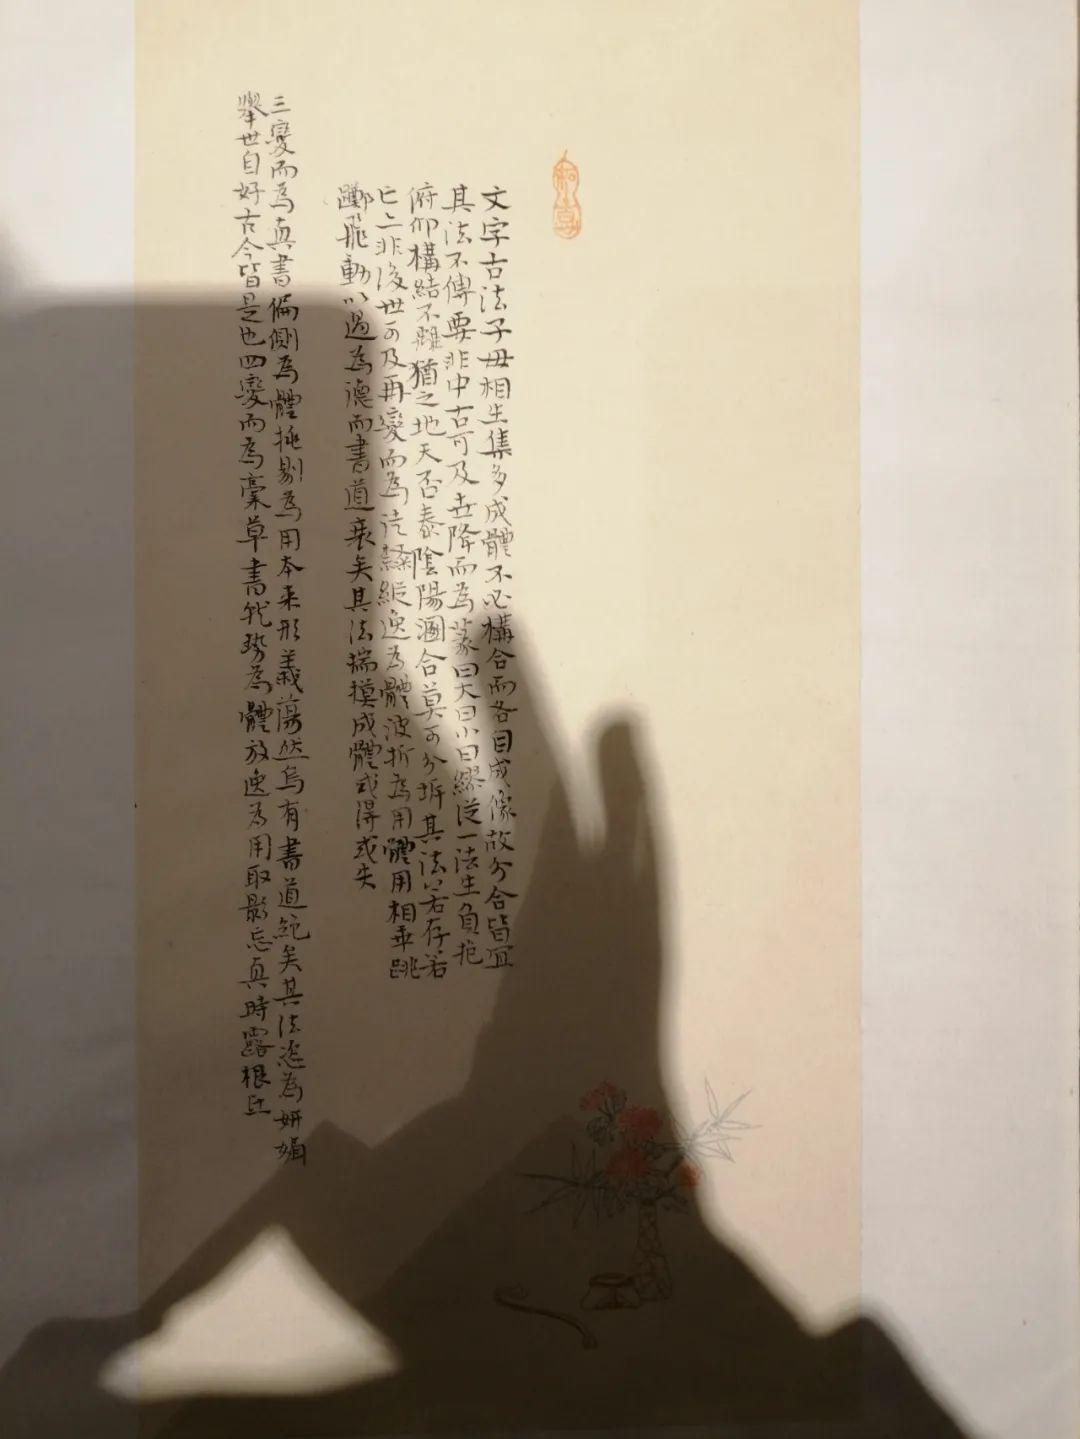 文字古法子毋相生集多成體不必構合而各自成像故分合皆宜
其法不傳要非中古可及世降而為篆曰大曰小曰繆從一法生負抱
俯仰構結不離猶之地天否泰陰陽溷合莫可分拆其法若存若
亡亡非後世可及再變而為隸縱逸為體波折為用體用相乖跳
躑飛動以過為德而書道衰矣其法揣摸成體或得或失
三變而為真書偏側為體挑剔為用本来形義蕩然烏有書道絕矣其法恣為妍媚
舉世自好古今皆是也四變而為稾草書狀勢為體放逸為用取影忘真時露根